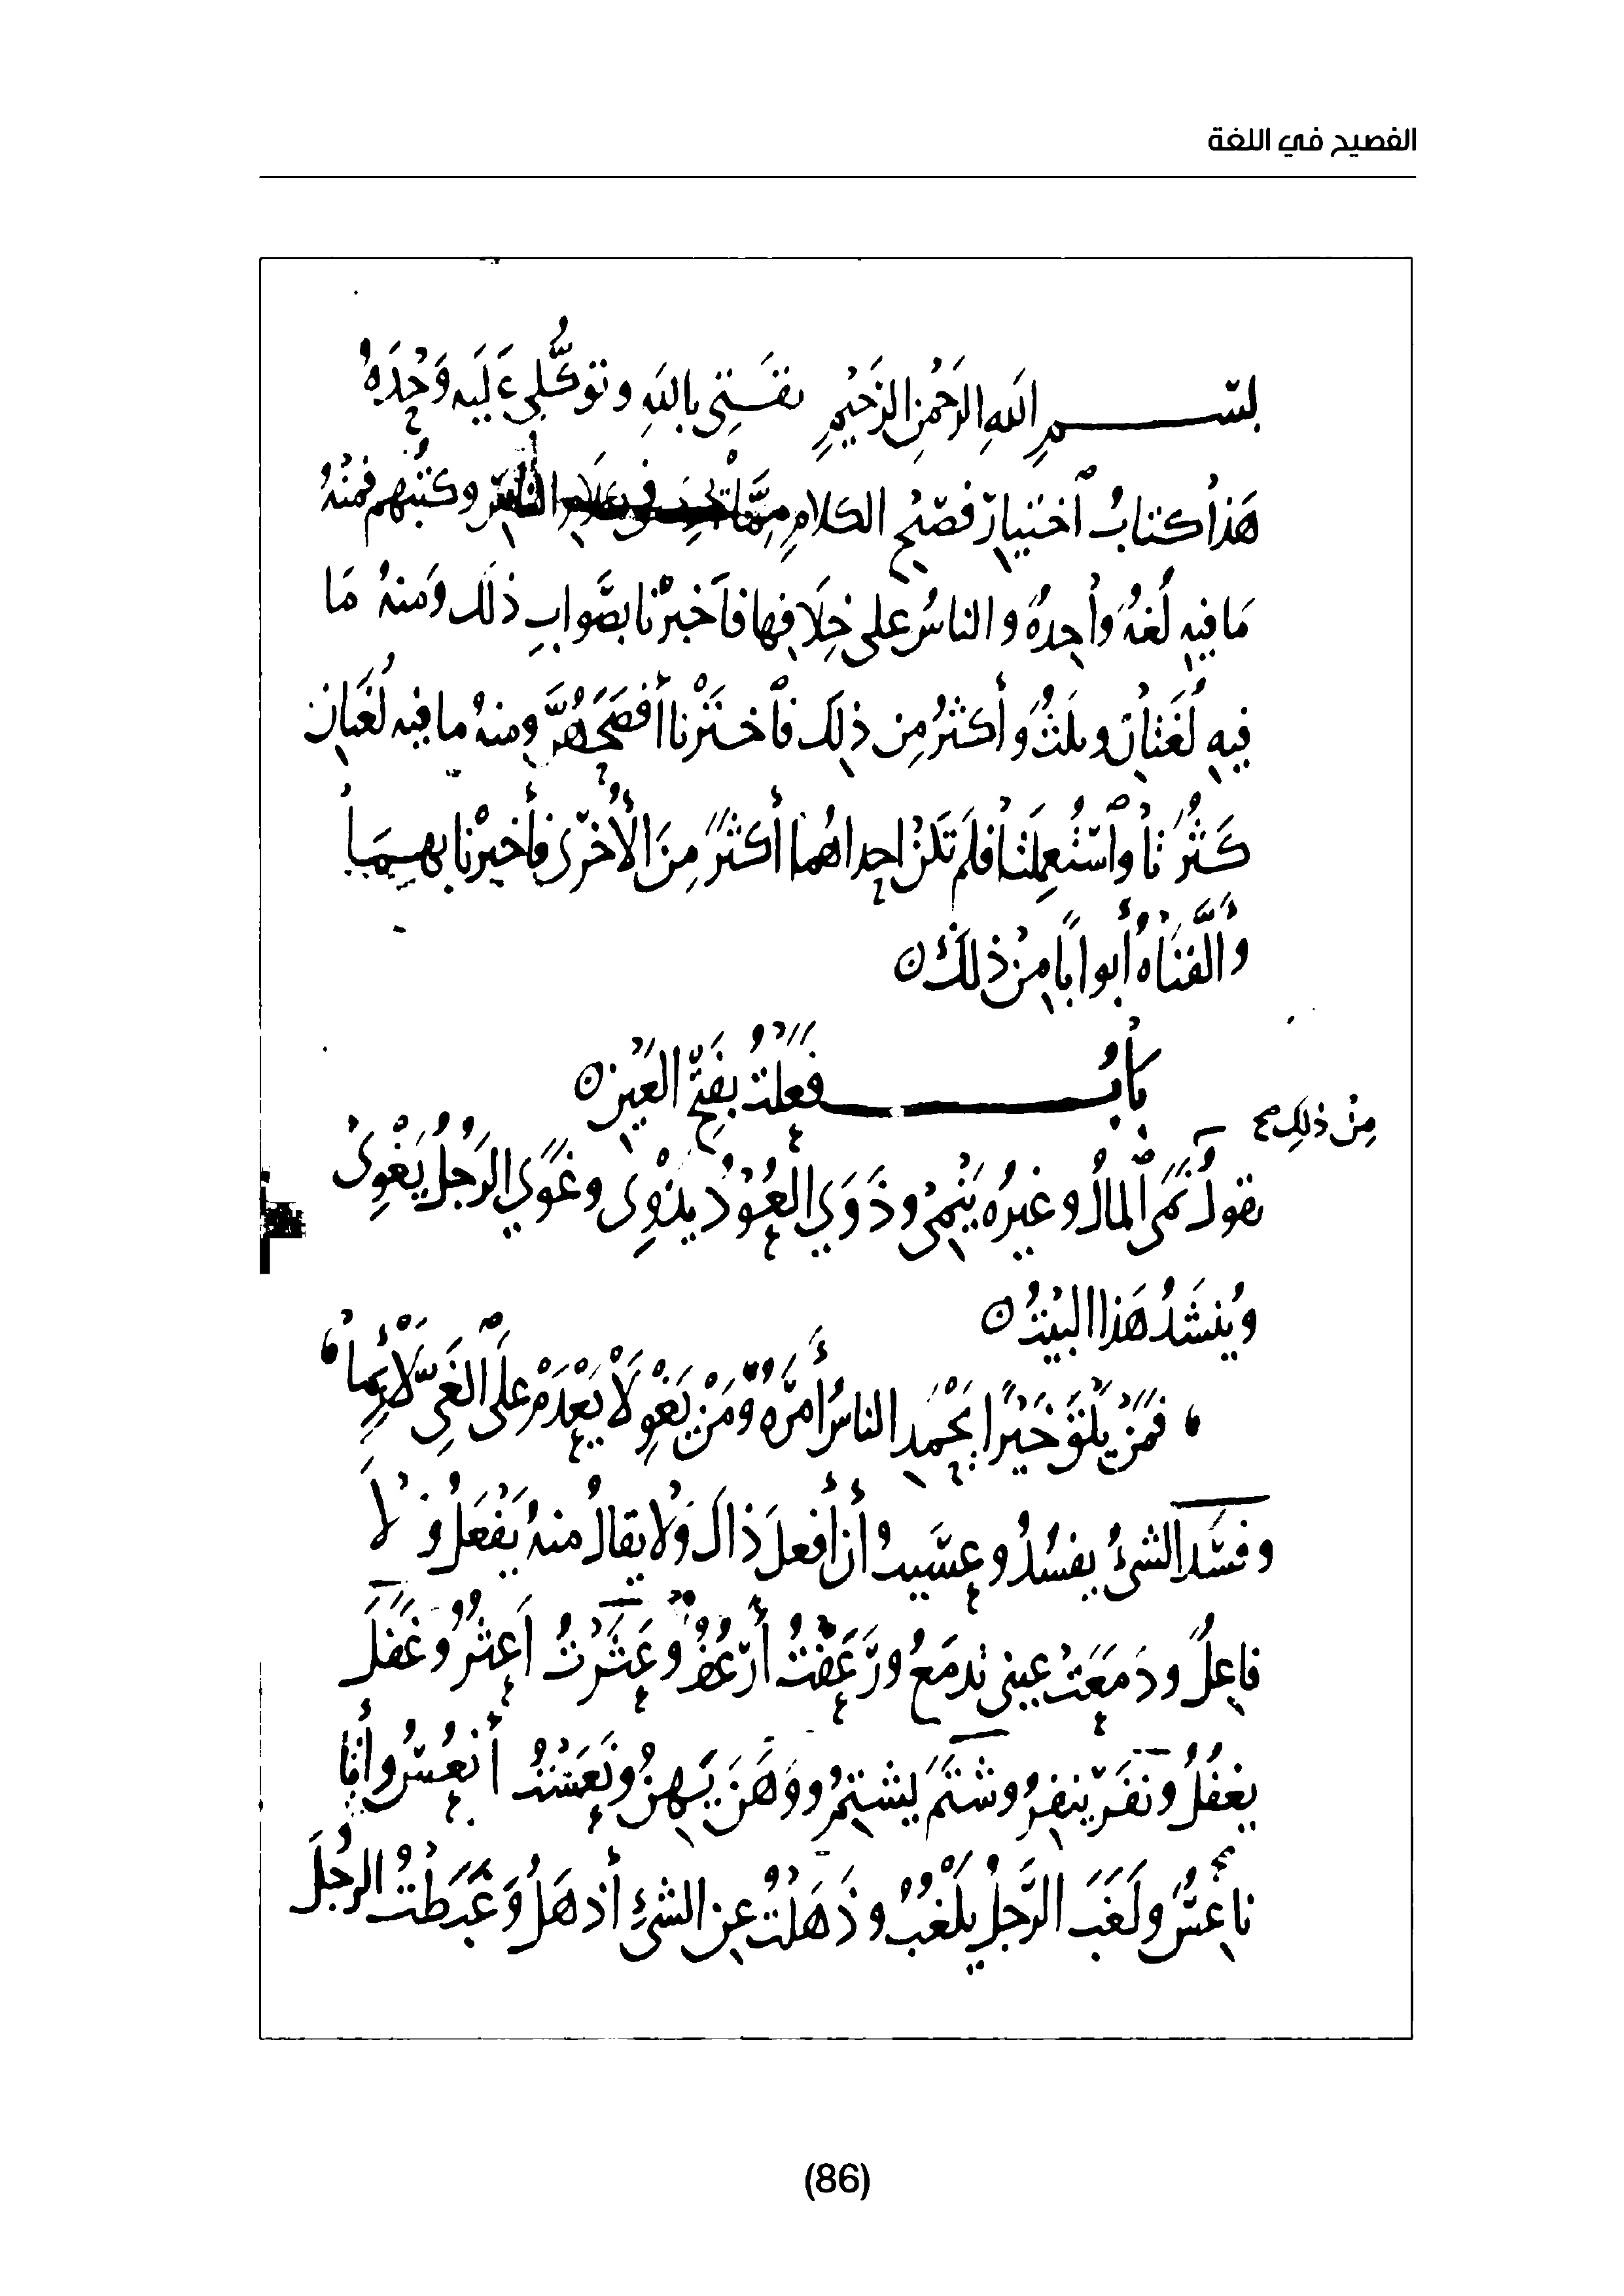 الفصيح في اللغة
بسم الله الرحمن الرحيم ثقتي بالله وتوكلي عليه وحده
هذا كتاب اختيار فصيح الكلام مما يجري في كلام الناس وكتبهم فمنه
ما فيه لغة واحدة والناس على خلافها فأخبرنا بصواب ذلك ومنه ما
فيه لغتان وثلث وأكثر من ذلك فاختרنا أفصحهن ومنه ما فيه لغتان
كثرتا واستعملتا فلم تكن إحداهما أكثر من الأخرى فأخبرنا بهما
وألفناه أبوابا من ذلك
باب فعلت بفتح العين
من ذلك صح
تقول نمى المال وغيره ينمي وذوى العود يذوي وغوى الرجل يغوي
وينشد هذا البيت
فمن يلق خيرا يحمد الناس أمره ومن يغو لا يعدم على الغي لائما
وفسد الشيء يفسد وعسيت أن أفعل ذاك ولا يقال منه يفعل ولا
فاعل ودمعت عيني تدمع ورعفت أرعف وعثرت أعثر وغفل
يغفل ونفر ينفر وشتم يشتم ووهن يهن ونعست أنعس وأنا
ناعس ولغب الرجل يلغب وذهلت عن الشيء أذهل وغبطت الرجل
(86)